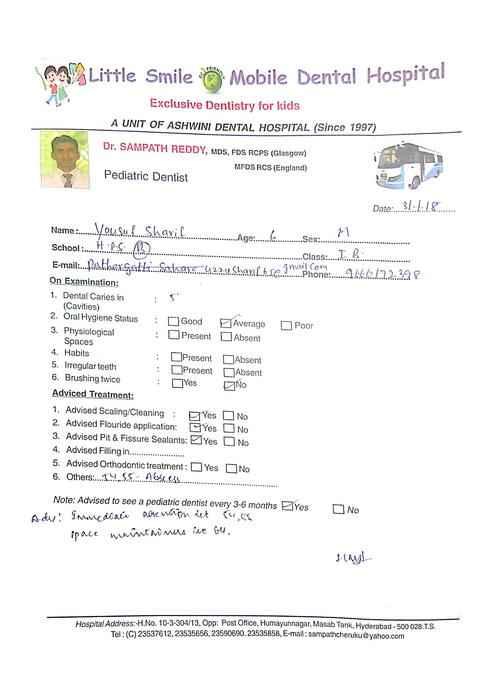 Little Smile Mobile Dental Hospital
Exclusive Dentistry for kids
A UNIT OF ASHWINI DENTAL HOSPITAL (Since 1997)
Dr. SAMPATH REDDY, MDS, FDS RCPS (Glasgow)
MFDS RCS (England)
Pediatric Dentist
Date: 31/1/18
Name: Yousuf Sharif Age: 6 Sex: M
School: H.P.S (B) Class: I B
E-mail: Phone:
On Examination:
1. Dental Caries in (Cavities) : 5
2. Oral Hygiene Status : Good Average Poor
3. Physiological Spaces : Present Absent
4. Habits Present Absent
5. Irregular teeth Present Absent
6. Brushing twice Yes No
Adviced Treatment:
1. Advised Scaling/Cleaning : Yes No
2. Advised Flouride application: Yes No
3. Advised Pit & Fissure Sealants: Yes No
4. Advised Filling in
5. Advised Orthodontic treatment : Yes No
6. Others:
Note: Advised to see a pediatric dentist every 3-6 months Yes No
Adv: Immediate
space maintainers
Hospital Address:-H.No. 10-3-304/13, Opp: Post Office, Humayunnagar, Masab Tank, Hyderabad - 500 028.T.S.
Tel : (C) 23537612, 23535656, 23590690. 23535858, E-mail : sampathcheruku@yahoo.com